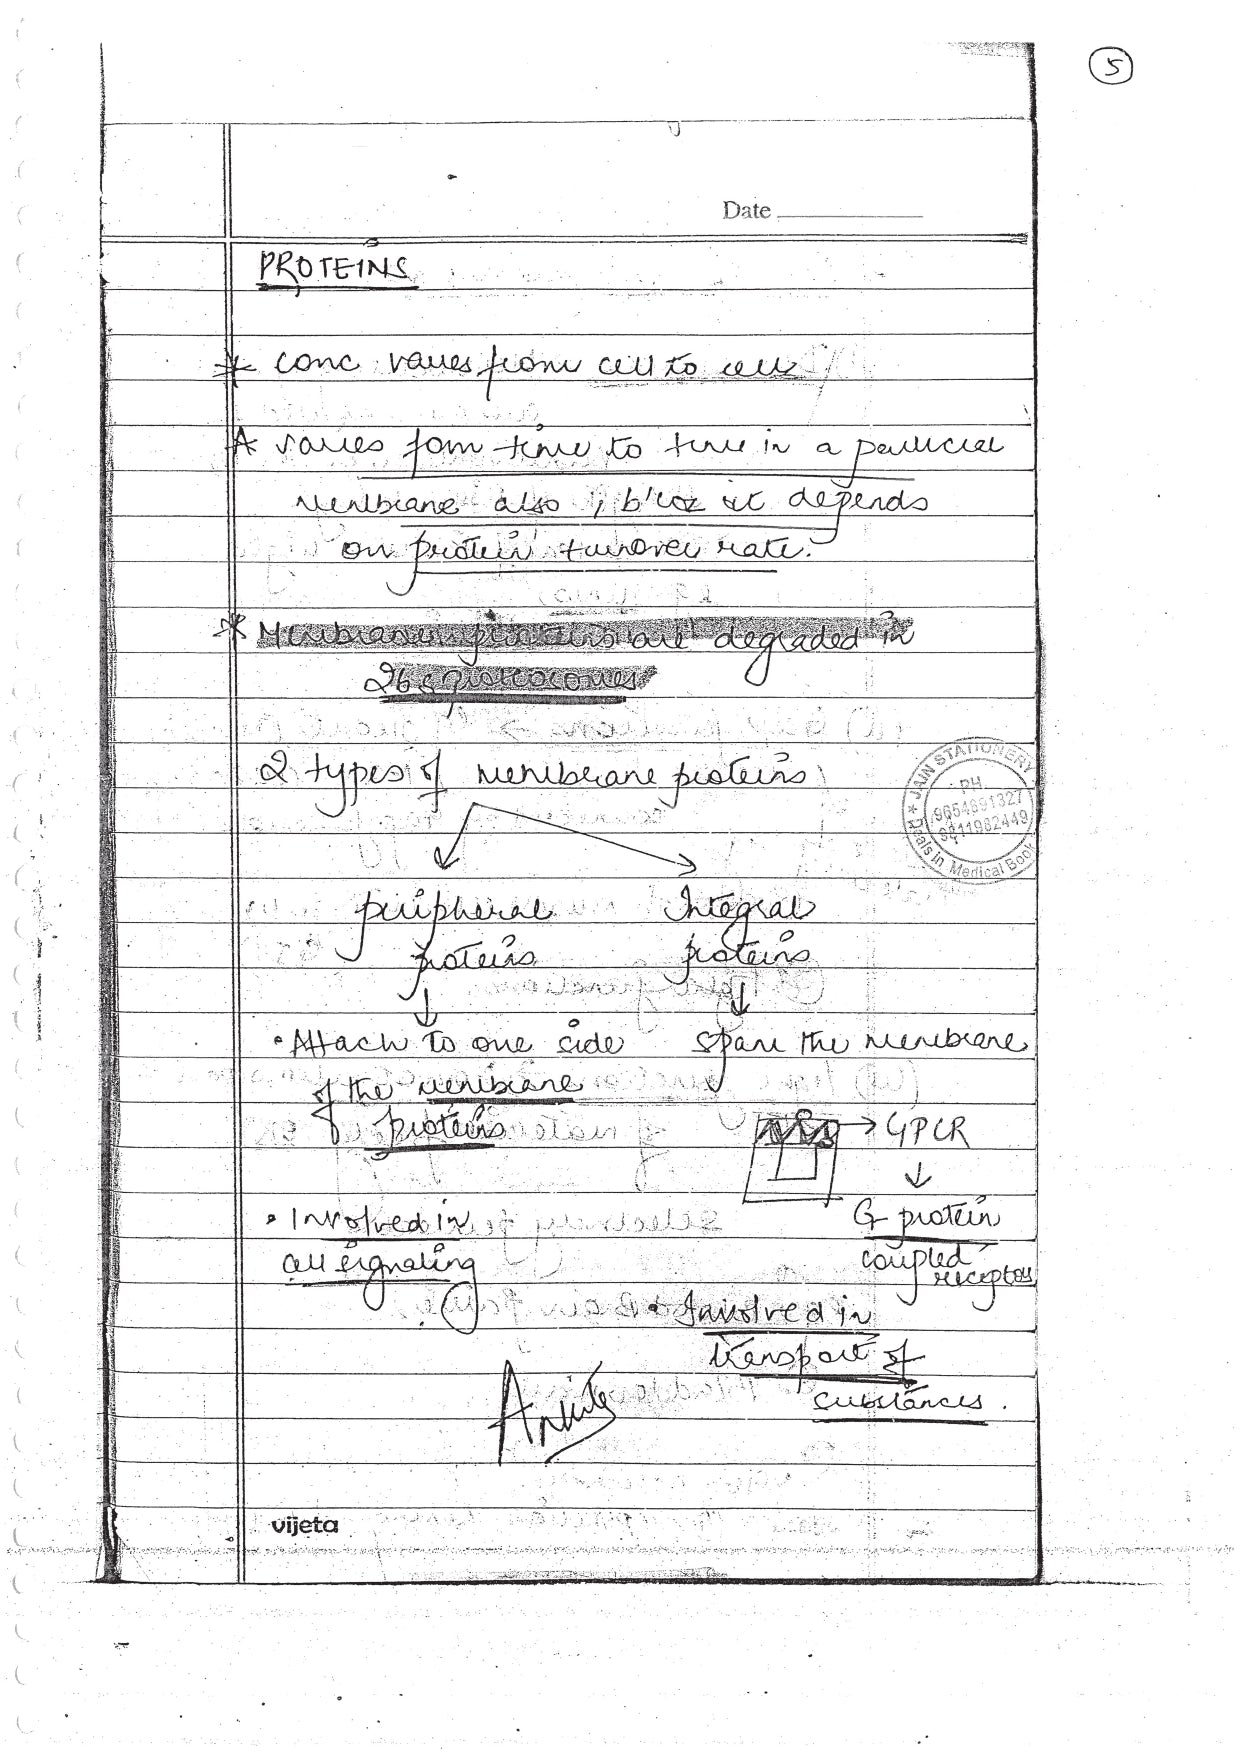 5
Date
PROTEINS
* conc varies from cell to cell
* varies from time to time in a particular
membrane also, b'coz it depends
on protein turnover rate.
* Membrane proteins are degraded in
26 S proteosomes
2 types of membrane proteins
peripheral
proteins
• Attach to one side
of the membrane
proteins
• Involved in
cell signaling
Integral
proteins
span the membrane
→ GPCR
G protein
coupled
receptor
• Involved in
transport of
substances.
JAIN STATIONERY
PH.
9654691327
9811982449
Deals in Medical Book
vijeta